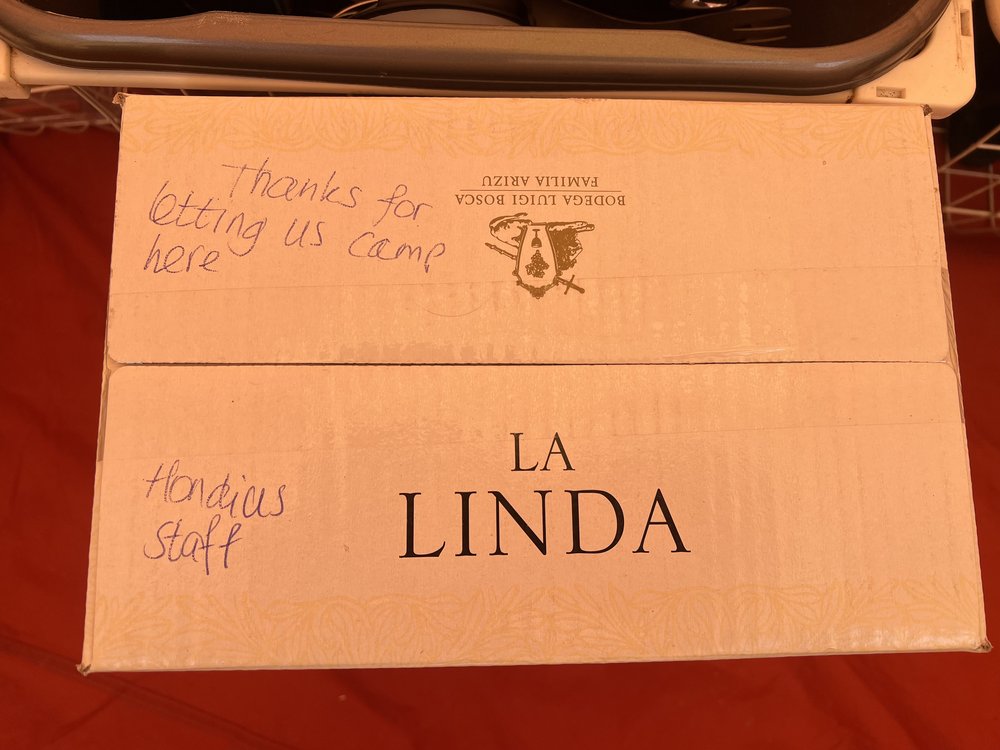 Thanks for
letting us camp
here
BODEGA LUIGI BOSCA
FAMILIA ARIZU
LA
LINDA
Hondius
Staff